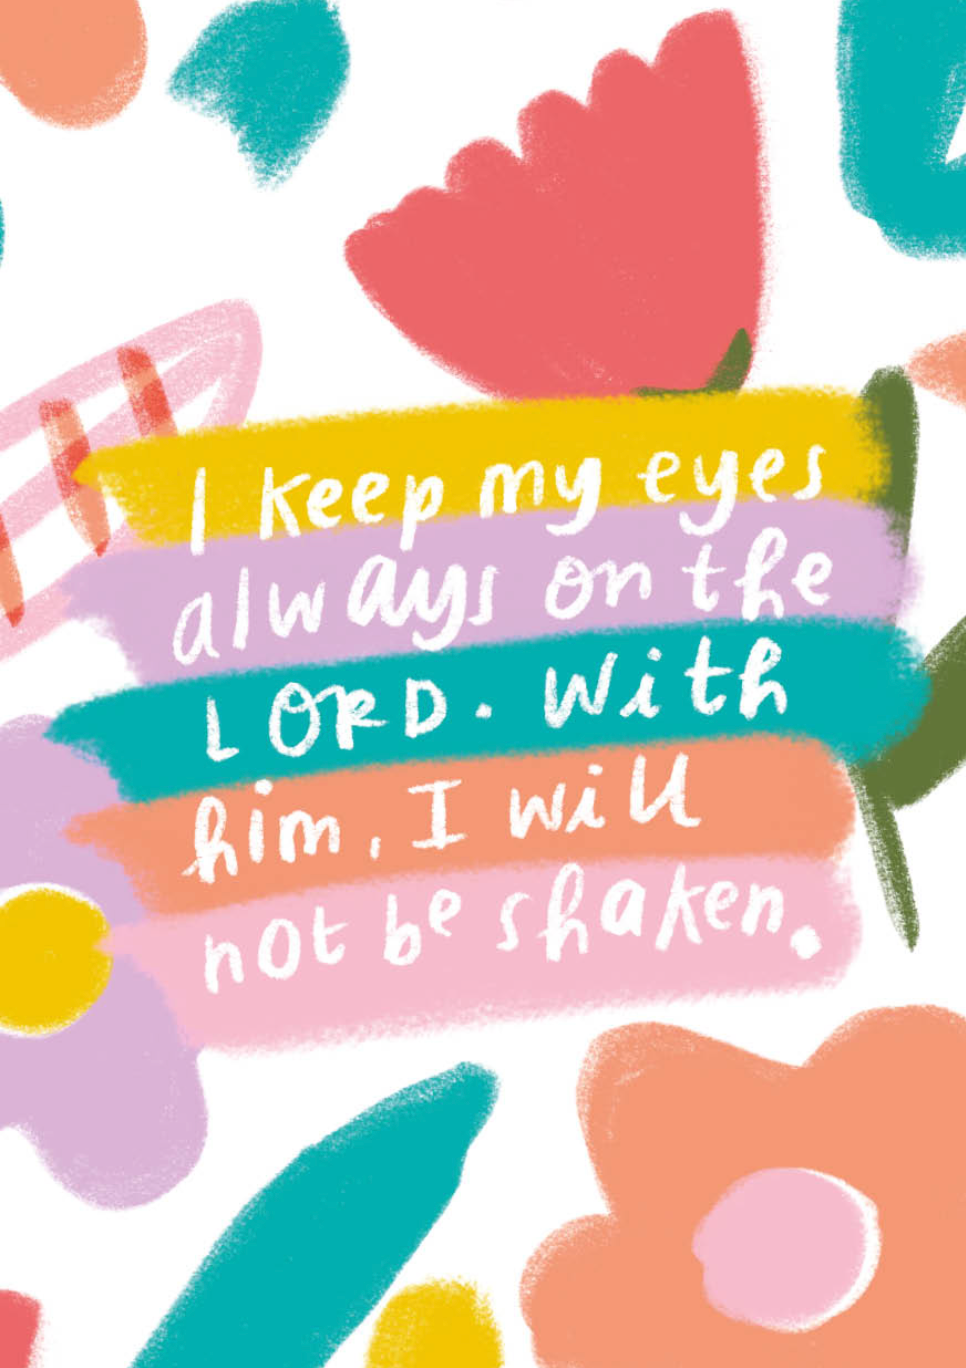 I keep my eyes
always on the
LORD. With
him, I will
not be shaken.